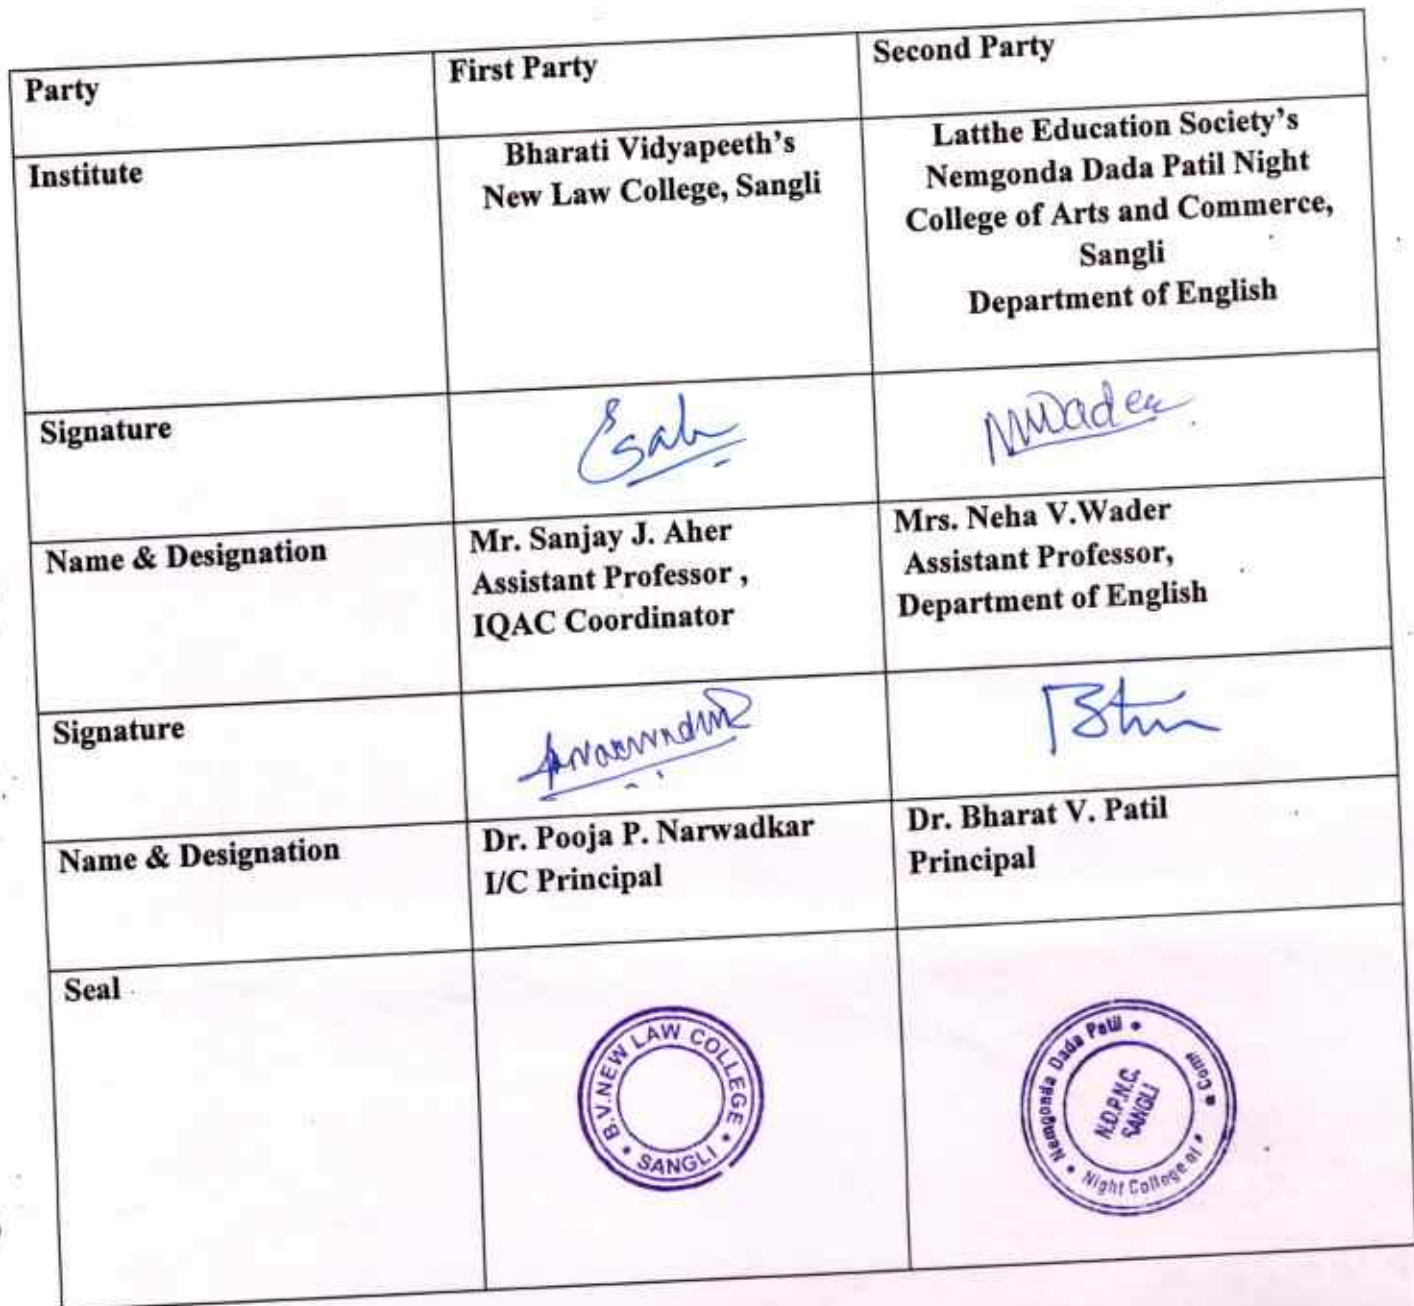 Party
First Party
Second Party
Institute
Bharati Vidyapeeth's
New Law College, Sangli
Latthe Education Society's
Nemgonda Dada Patil Night
College of Arts and Commerce,
Sangli
Department of English
Signature
Name & Designation
Mr. Sanjay J. Aher
Assistant Professor ,
IQAC Coordinator
Mrs. Neha V.Wader
Assistant Professor,
Department of English
Signature
Name & Designation
Dr. Pooja P. Narwadkar
I/C Principal
Dr. Bharat V. Patil
Principal
Seal
B.V.NEW LAW COLLEGE
SANGLI
Nemgonda Dada Patil
Night College of
N.D.P.N.C.
SANGLI